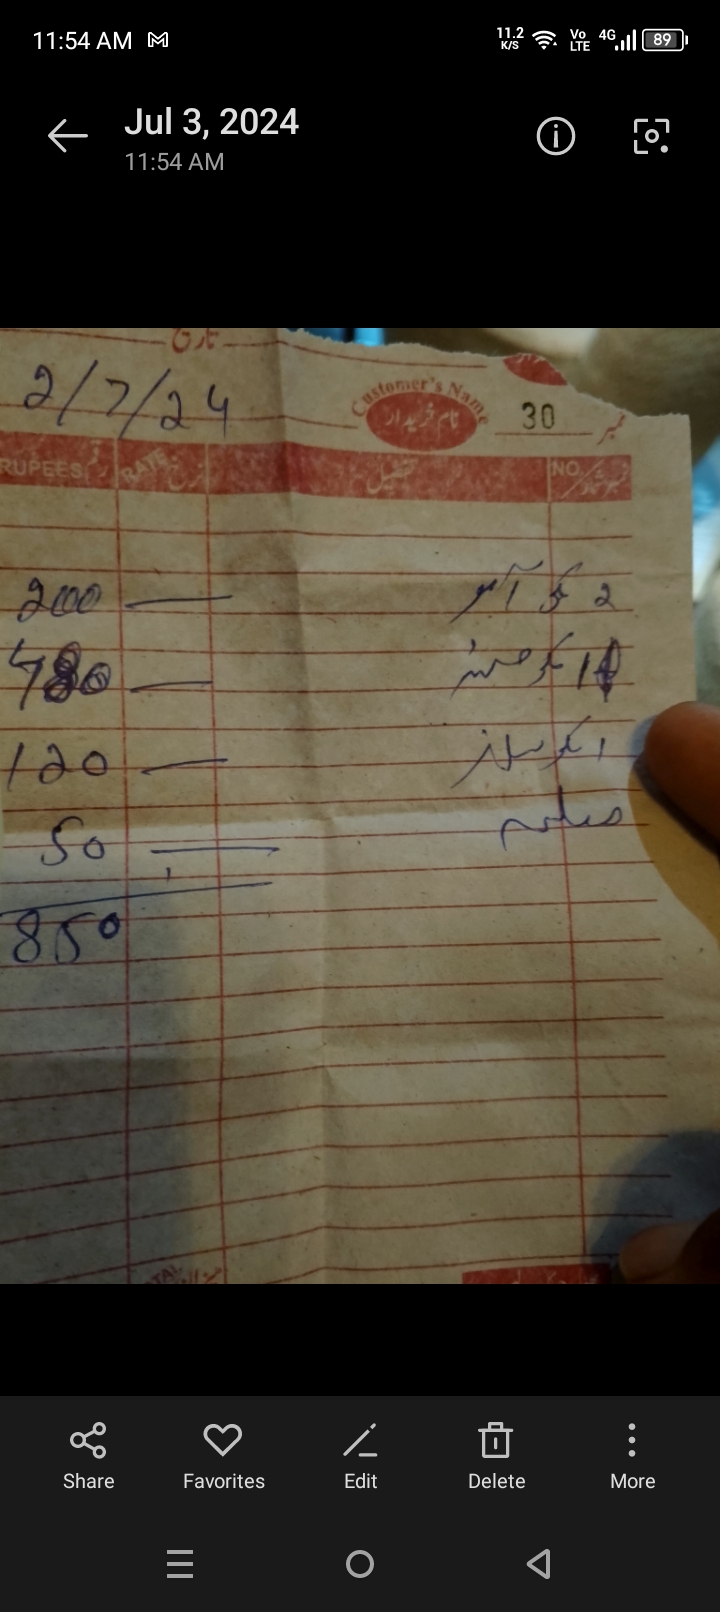 11:54 AM
11.2 K/S Vo LTE 4G 89
Jul 3, 2024
11:54 AM
تاریخ
2/7/24
Customer's Name
نام خریدار
30 نمبر
RUPEES رقم RATE نرخ تفصیل NO. نمبر شمار
200 — 2 کلو آلو
— 1 کلو
120 — 1 کلو پیاز
50 —
850
TOTAL میزان
Share Favorites Edit Delete More